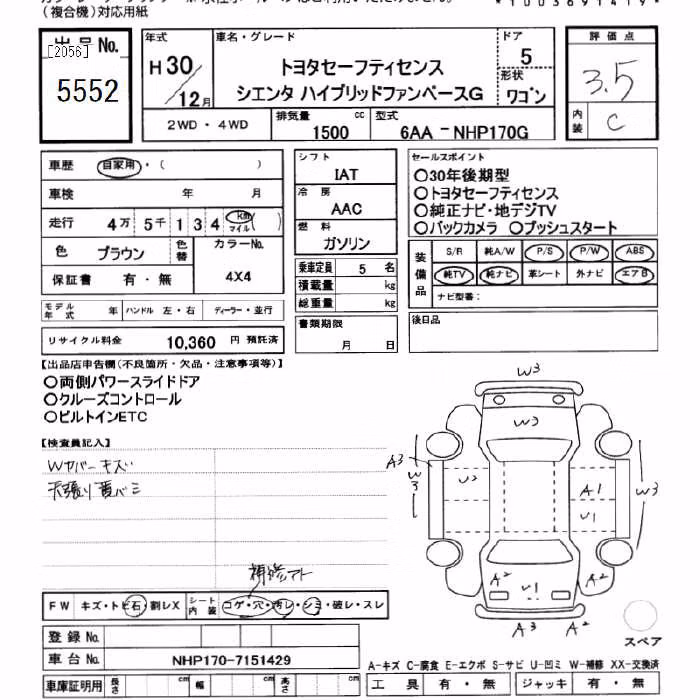 (複合機)対応用紙
*1003691419*
出品No.
[2056]
5552
年式
H30/12月
車名・グレード
トヨタセーフティセンス
シエンタ ハイブリッドファンベースG
ドア
5
形状
ワゴン
評価点
3.5
内装
C
2WD・4WD
排気量
1500 cc
型式
6AA-NHP170G
車歴 自家用・( )
車検 年 月
走行 4万 5千 1 3 4 km マイル ( )
色 ブラウン
色替
カラーNo.
4X4
保証書 有・無
モデル年式 年
ハンドル 左・右
ディーラー・並行
リサイクル料金 10,360 円 預託済
シフト
IAT
冷房
AAC
燃料
ガソリン
乗車定員 5 名
積載量 kg
総重量 kg
書類期限
月 日
セールスポイント
○30年後期型
○トヨタセーフティセンス
○純正ナビ・地デジTV
○バックカメラ ○プッシュスタート
装備品
S/R 純A/W P/S P/W ABS
純TV 純ナビ 革シート 外ナビ エアB
ナビ型番:
後日品
【出品店申告欄(不良箇所・欠品・注意事項等)】
○両側パワースライドドア
○クルーズコントロール
○ビルトインETC
【検査員記入】
Wカバーキズ
天張り黄バミ
補修アト
FW キズ・トビ石・割レX
シート内装 コゲ・穴・汚レ・シミ・破レ・スレ
W3
W3
A3
W3
U2
A1
U1
W3
A2
U1
A2
A3
A2
スペア
登録No.
車台No. NHP170-7151429
車庫証明用 長さ cm 幅 cm 高さ cm
A-キズ C-腐食 E-エクボ S-サビ U-凹ミ W-補修 XX-交換済
工具 有・無 ジャッキ 有・無